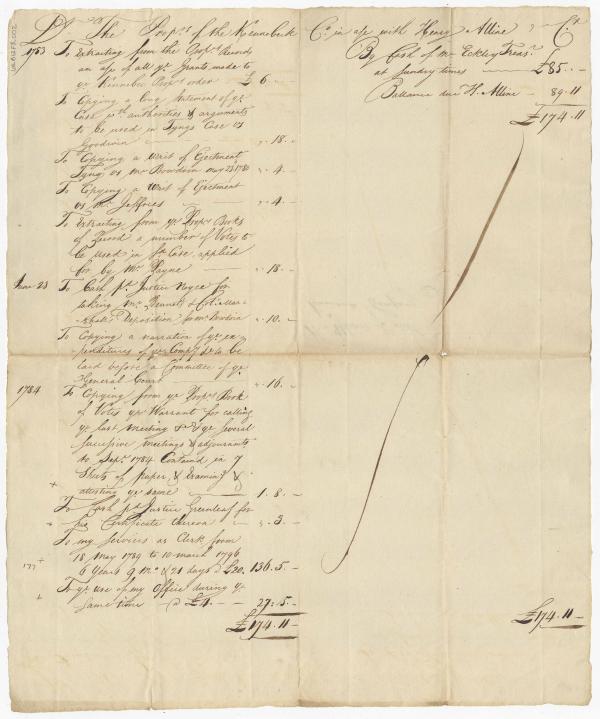 Dr The Prop.rs of the Kennebeck Co. in a/c with Henry Alline Cr
1783 To Extracting from the Prop.rs Records
an a/c of all ye Grants made to
ye Kennebec Prop.rs order £ 6. -
To Copying a long Statement of ye
Case with authorities & arguments
to be used in Tyngs Case vs
Goodwin " 18. -
To Copying a Writ of Ejectment
Tyng vs Mr Bowdoin " 4. -
To Copying a Writ of Ejectment
vs Mr. Jeffries " 4. -
To Extracting from ye Prop.rs Books
of Record a number of Votes to
be used in sd Case, applied
for by Mr. Payne " 18. -
23 To Cash pd. Justice Noyce for
taking Mrs. Bennet & Col.
Deposition for Mr. Bowdoin " 10. -
To Copying a narration of ye ex-
penditures of your Comp.y to be
laid before a Committee of ye
General Court " 16. -
1784 To Copying from ye Prop.rs Book
of Votes ye Warrant for calling
ye last meeting & ye several
successive meetings & adjournmts
to Sep.r 1784 Contained in 7
Sheets of paper, & Examing &
attesting ye same 1. 8. -
To Cash pd. Justice Greenleaf for
his Certificate thereon " 3. -
To my Services as Clerk from
18 May 1789 to 10 March 1796
6 Years 9 mo. & 21 days @ £20. 136. 5. -
To ye use of my Office during ye
same time @ £4. 27. 5. -
£174. 11 -
By Cash of Mr Eckley Treas.r
at sundry times £85. -
Ballance due H. Alline 89. 11
£174. 11
£174. 11 -